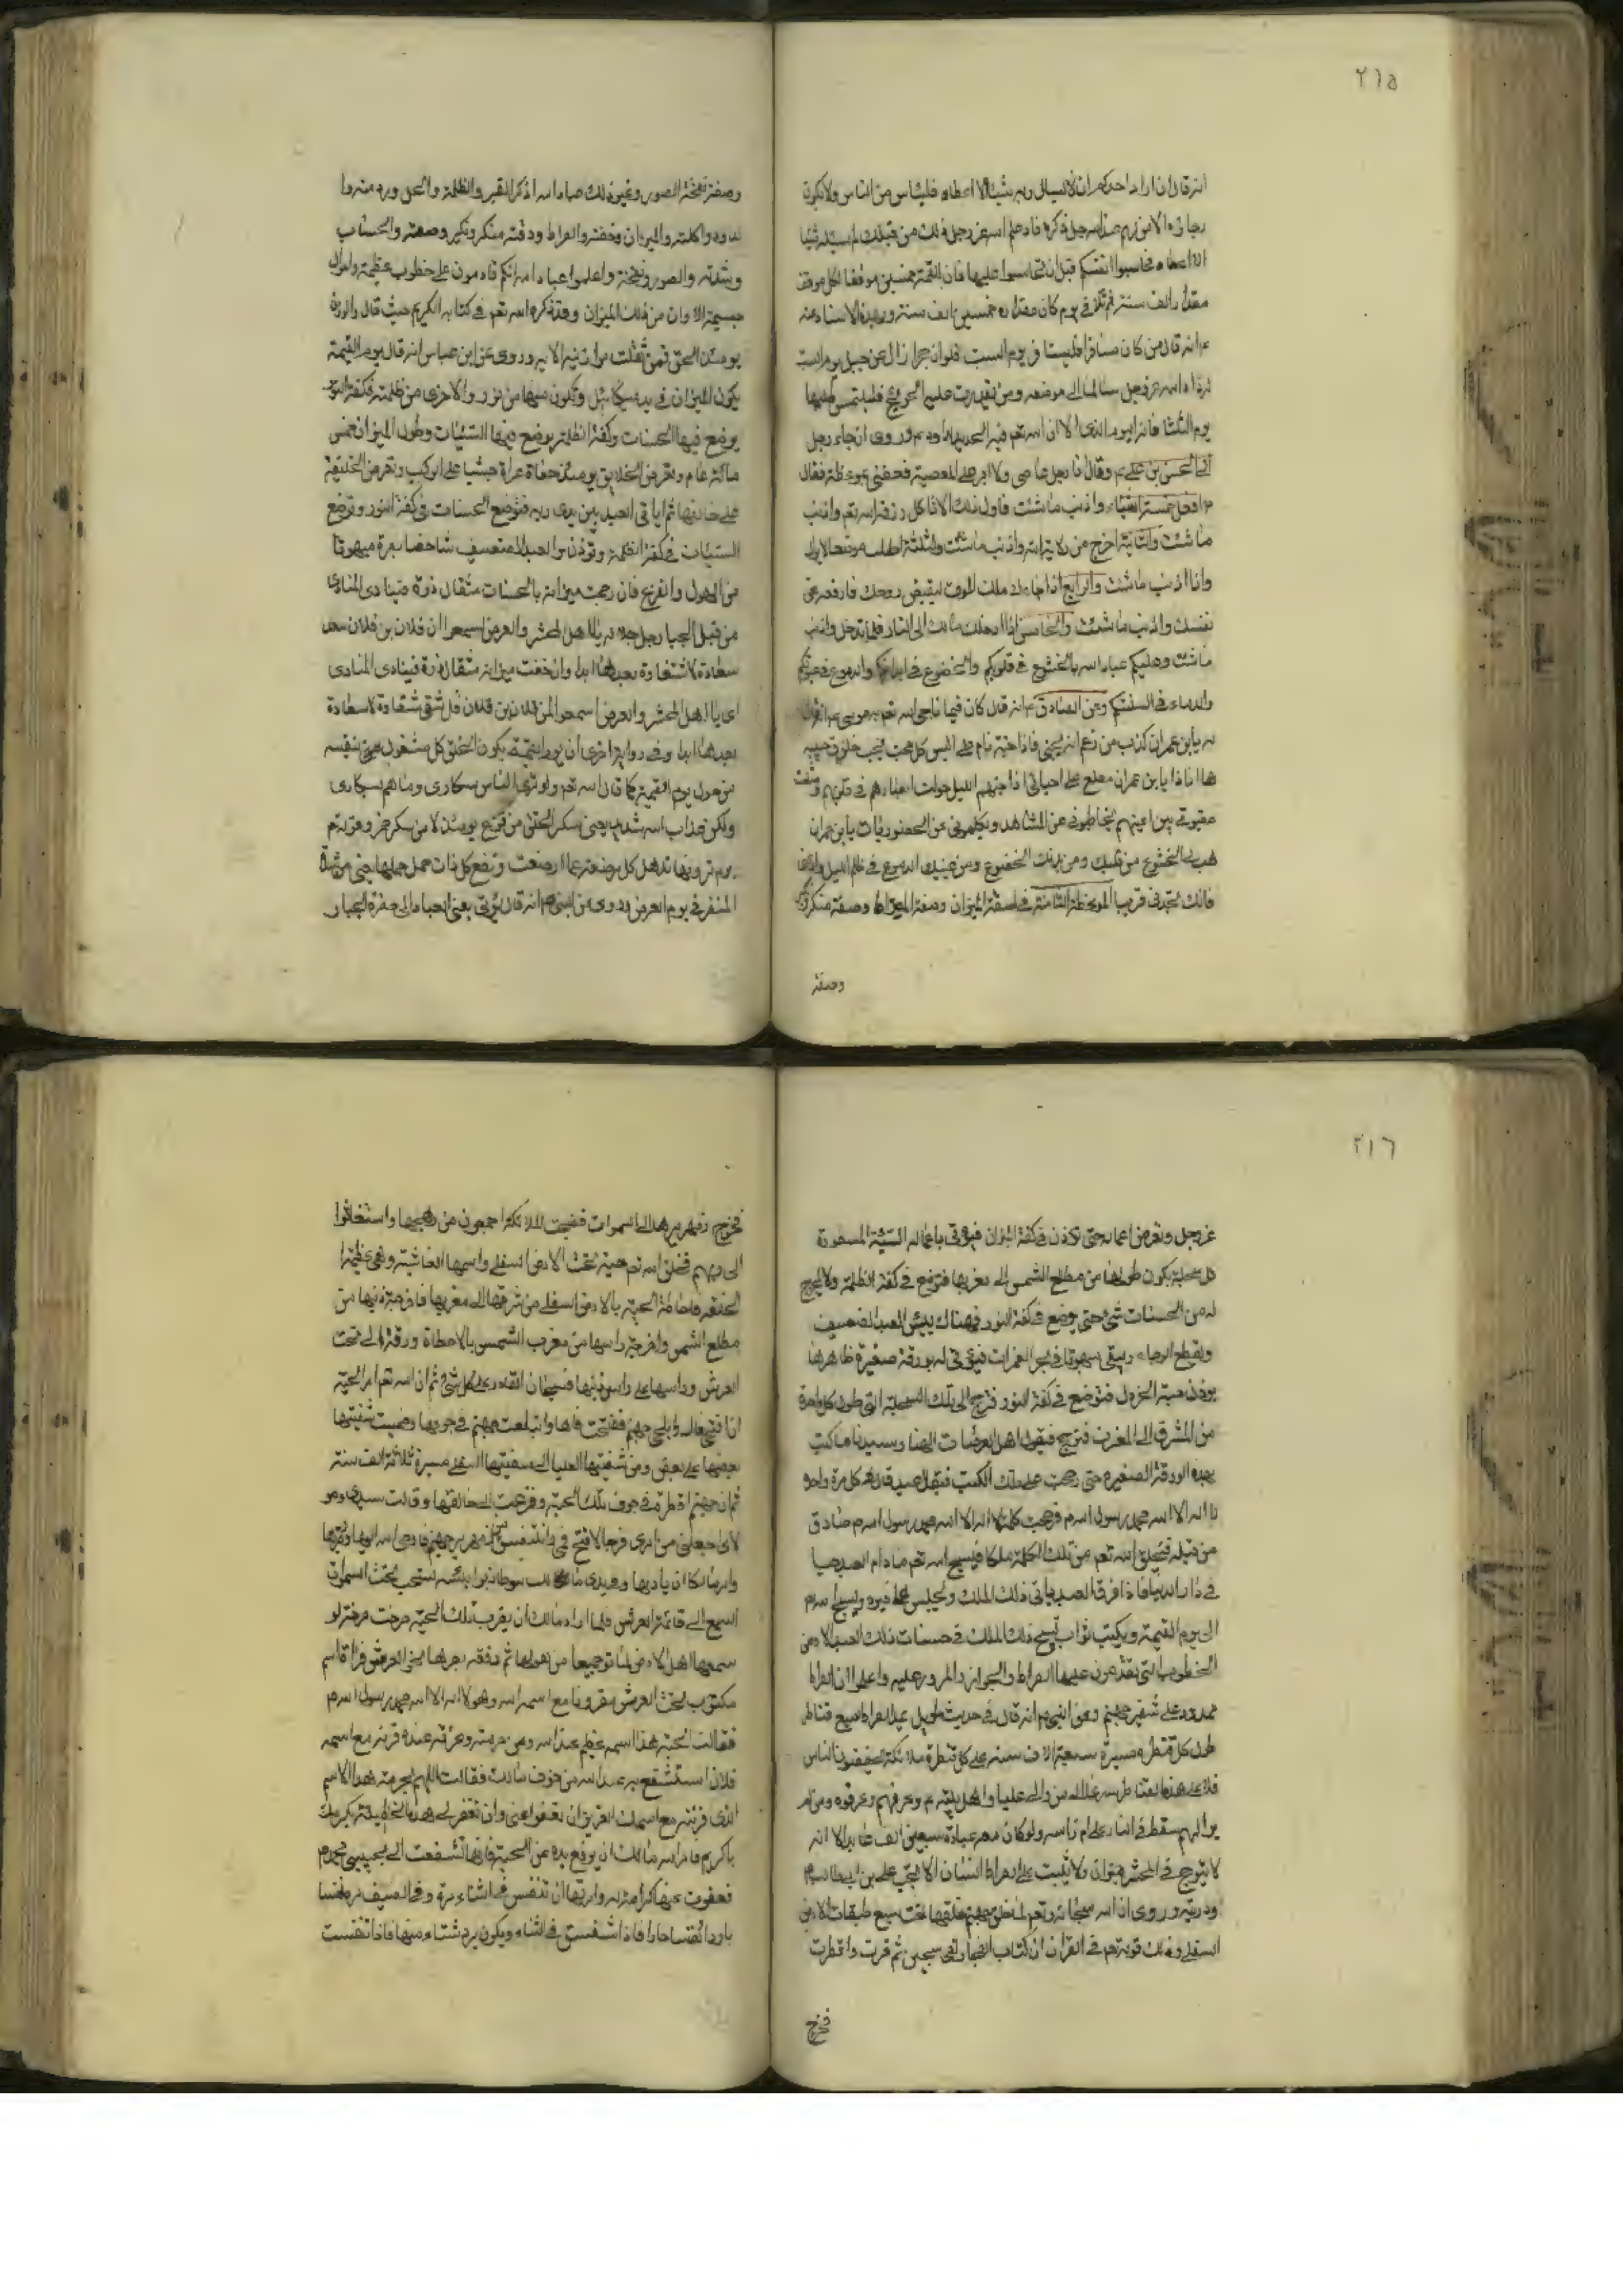 ٢١٥
انه قال ان اراد احدكم ان لا يسال ربه شيئا الا اعطاه فليئاس من الناس ولا يكون
رجاؤه الا من عند الله جل ذكره فاذا علم الله عز وجل ذلك من قبلك لم تسئله شيئا
الا اعطاه فحاسبوا انفسكم قبل ان تحاسبوا عليها فان للقيمة خمسين موقفا كل موقف
مقداره الف سنة ثم تلا في يوم كان مقداره خمسين الف سنة وبهذا الاسناد عنه
ع انه قال من كان مسافرا فليسافر يوم السبت فلو ان حجرا زال عن جبل يوم السبت
لرده الله عز وجل سالما الى موضعه ومن تعذرت عليه الحوائج فليلتمس طلبها
يوم الثلثا فانه اليوم الذى الان الله تعم فيه الحديد لداود ع وروى ان جاءه رجل
الى الحسن بن على ع وقال انا رجل عاصى ولا اصبر على المعصية فعظنى بموعظة فقال
ع افعل خمسة اشياء واذنب ماشئت فاول ذلك لا تاكل رزق الله تعم واذنب
ما شئت والثانية اخرج من ولاية الله واذنب ماشئت والثالثة اطلب موضعا لا يراك
واذنب ماشئت والرابع اذا جاءك ملك الموت ليقبض روحك فادفعه عن
نفسك واذنب ما شئت والخامس اذا ادخلك مالك الى النار فلا تدخل واذنب
ماشئت وعليكم عباد الله بالخشوع فى قلوبكم والخضوع فى ابدانكم والدموع فى عيونكم
والدعاء فى السنتكم وعن الصادق ع انه قال كان فيما ناجى الله تعم به موسى ع ان قال
له يابن عمران كذب من زعم انه يحبنى فاذا جنه نام على اليس كل محب يحب خلوة حبيبه
ها انا ذا يابن عمران مطلع على احبائى اذا جنهم الليل حولت ابصارهم فى قلوبهم ومثلت
عقوبتى بين اعينهم يخاطبونى عن المشاهد ويكلمونى عن الحضور يابن عمران
هب لى الخشوع من قلبك ومن بدنك الخضوع ومن عينيك الدموع فى ظلم الليل وادعنى
فانك تجدنى قريبا الموعظة الثامنة فى صفة الميزان وصفة الصراط وصفة منكر ونكير
وصفة
وصفة نفخة الصور وغير ذلك عباد الله اذكروا القبر والظلمة والضيق
والميزان وخفته والصراط ودقته ومنكر ونكير وصفته والحساب
وشدته والصور ونفخته واعلموا عباد الله انكم قادمون على خطوب عظيمة واهوال
جسيمة الا وان من ذلك الميزان وقد ذكره الله تعم فى كتابه الكريم حيث قال والوزن
يومئذ الحق فمن ثقلت موازينه الاية وروى عن ابن عباس انه قال يوم القيمة
يكون الميزان فى يد ميكائيل ويكون منها من نور والاخرى من ظلمة فكفة النور
يوضع فيها الحسنات وكفة الظلمة يوضع فيها السيئات وطول الميزان خمس
مائة عام وتعرض الخلايق يومئذ حفاة عراة جثيا على الركب وتعرض الخليقة
على خالقها ثم ياتى العبد بين يدى ربه فتوضع الحسنات فى كفة النور وتوضع
السيئات فى كفة الظلمة وتوزن والعبد الضعيف شاخصا بصره مبهوتا
من الهول والفزع فان رجحت ميزانه بالحسنات مثقال ذرة فينادى المنادى
من قبل الجبار جل جلاله يا اهل المحشر والعرض اسمعوا ان فلان بن فلان سعد
سعادة لا شقاوة بعدها ابدا وان خفت ميزانه مثقال ذرة فينادى المنادى
اى يا اهل المحشر والعرض اسمعوا ان فلان بن فلان قد شقى شقاوة لا سعادة
بعدها ابدا وفى رواية اخرى ان يوم القيمة يكون الخلق كل مشغول بنفسه
من هول يوم القيمة كما قال الله تعم وترى الناس سكارى وما هم بسكارى
ولكن عذاب الله شديد يعنى سكر الخلق من فزع يومئذ لا من سكر خمر وقوله تعم
يوم ترونها تذهل كل مرضعة عما ارضعت وتضع كل ذات حمل حملها يعنى من شدة
الفزع يوم العرض وروى عن النبى ص انه قال يؤتى بعض العباد الى حضرة الجبار
٢١٦
عز وجل وتعرض اعماله حتى توزن فى كفة الميزان فيؤتى باعماله السيئة المسودة
كل سجلة يكون طولها من مطلع الشمس الى مغربها فتوضع فى كفة الظلمة ولا يخرج
له من الحسنات شئ حتى يوضع فى كفة النور فهناك يبئس العبد الضعيف
ويقطع الرجاء ويبقى مبهوتا فى بحر الغمرات فيؤتى له بورقة صغيرة ظاهرها
بوزن حبة الخردل فتوضع فى كفة النور فترجح الى تلك السجلة التى طول كل واحدة
من المشرق الى المغرب فترجح فيقول اهل العرصات الهنا وسيدنا ما كتب
بهذه الورقة الصغيرة حتى رجحت على تلك الكتب فيقول عبدى قال كل مرة واحدة
لا اله الا الله محمد رسول الله ص فرجحت كلمة لا اله الا الله محمد رسول الله ص صادق
من قبله فيخلق الله تعم من تلك الكلمة ملكا فيسبح الله تعم ما دام العبد حيا
فى دار الدنيا فاذا فرق العبد ياتى ذلك الملك ويجلس على قبره ويسبح الله
الى يوم القيمة ويكتب ثواب تسبيح ذلك الملك فى حسنات ذلك العبد الا ومن
الخطوب التى تقدمون عليها الصراط والجواز والمرور عليه واعلم ان الصراط
ممدود على شفير جهنم وعن النبى ص انه قال فى حديث طويل على الصراط سبع قناطر
طول كل قنطرة مسيرة سبعة الاف سنة على كل قنطرة ملائكة يحفظون الناس
فلا على هذه القناطر من والى عليا واهل بيته ع وعرفهم وعرفوه ومن لم
يوالهم سقط فى النار على ام راسه ولو كان معه عبادة سبعين الف عابد الا انه
لا يرجح فى المحشر ميزان ولا تثبت على الصراط انسان الا بحب على بن ابى طالب ع
وذريته وروى ان الله سبحانه وتعم لما خلق جهنم خلقها تحت سبع طبقات الارض
السفلى وذلك قوله تعم فى القران ان كتاب الفجار لفى سجين ثم قرت واقطرت
فخرج
فخرج زفيرها الى السموات فضجت الملائكة اجمعون من وهجها واستغاثوا
الى ربهم فخلق الله تعم حية تحت الارض السفلى واسمها الغاشية وهى عظيمة
الخلقة فاحاطت الحية بالارض السفلى من شرقها الى مغربها فاخرجت ذنبها من
مطلع الشمس واخرجت راسها من مغرب الشمس بالاحاطة ورقت الى تحت
العرش وراسها على راس ذنبها فسبحان القادر على كل شئ ثم ان الله تعم امر الحية
ان افتحى فاك وابلعى جهنم ففتحت فاها وابتلعت جهنم فى جوفها وضمت شفتيها
بعضها على بعض ومن شفتيها العليا الى شفتيها السفلى مسيرة ثلاثة الف سنة
ثم ان جهنم اقطرت فى جوف تلك الحية وفزعت الى خالقها وقالت سيدى ومولاى
اسمع الى قائمة العرش فلما اراد مالك ان يقرب تلك الحية صرخت صرخة لو
سمعها اهل الارض لماتوا جميعا من هولها ثم رفعت بصرها الى العرش فرات اسم
مكتوب تحت العرش مقرونا مع اسمه الله وهو لا اله الا الله محمد رسول الله ص
فقالت الحية هذا اسمه عظيم عند الله ومن حرمته وعزته عنده قرنه مع اسمه
فلان استشفع به عند الله من خوف مالك فقالت اللهم بحرمة هذا الاسم
الذى قرنته مع اسمك العزيز ان تعفوا عنى وان تغفر لى هذه الخطيئة بكرمك
يا كريم فامر الله مالك ان يرفع يده عن الحية فانها تشفعت الى بحبيبى محمد ص
فعفوت عنها كرامة له وامرتها ان تتنفس فى الشتاء مرة وفى الصيف مرة نفسا
باردا ونفسا حارا فاذا تنفست فى الشتاء ويكون برد شتاء منها فاذا تنفست